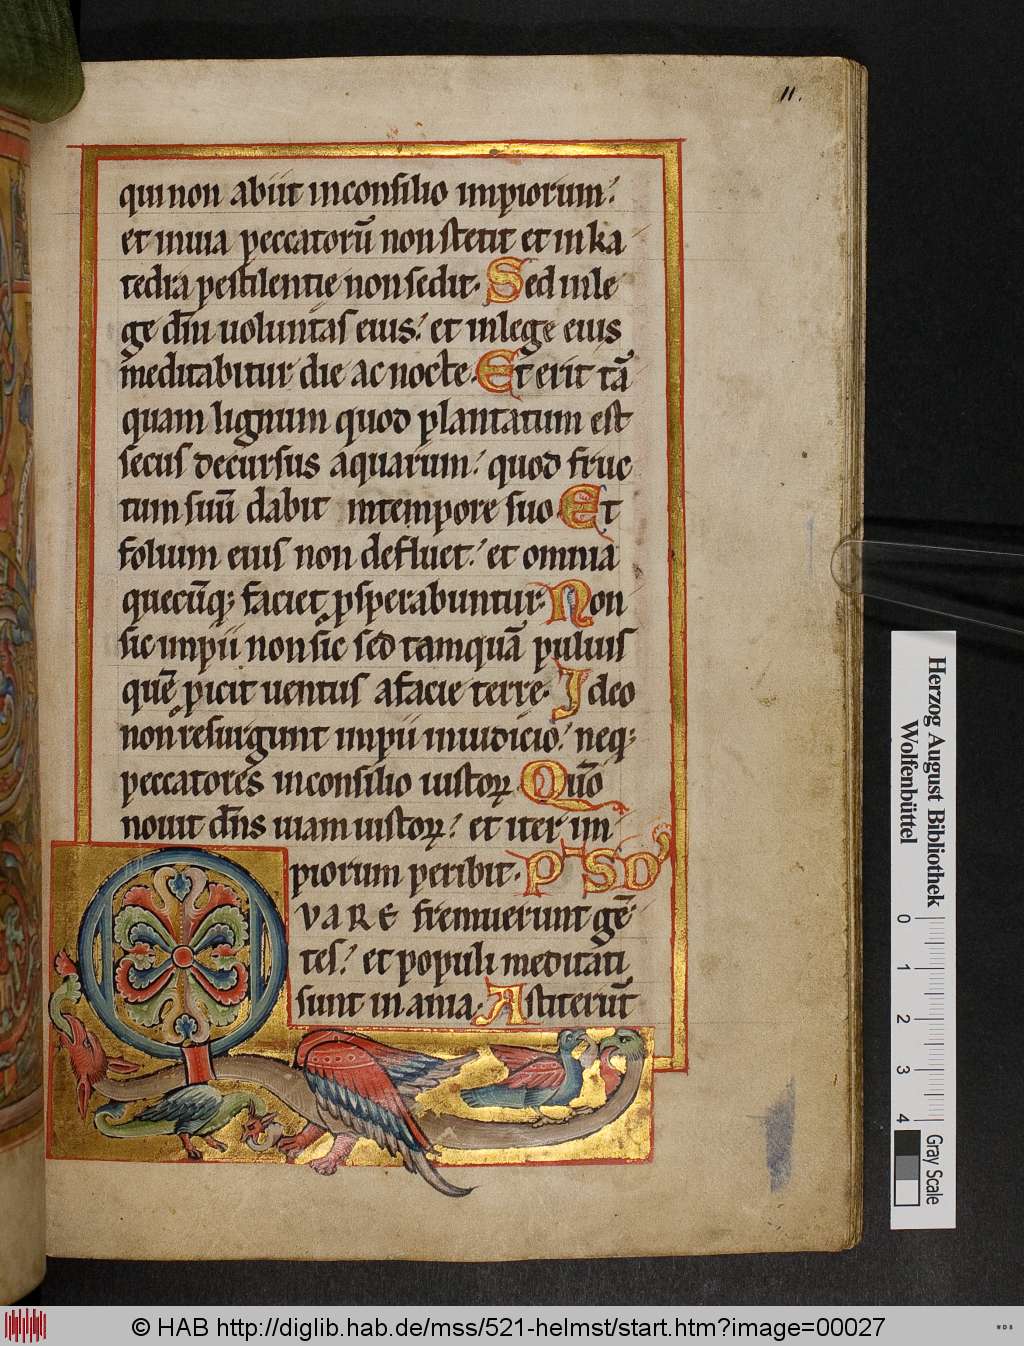 11.
qui non abiit in consilio impiorum
et in uia peccatorū non stetit et in ka
tedra pestilentie non sedit. Sed in le
ge dn̄i uoluntas eius: et in lege eius
meditabitur die ac nocte. Et erit tā
quam lignum quod plantatum est
secus decursus aquarum: quod fruc
tum suū dabit in tempore suo. Et
folium eius non defluet: et omnia
quecūq; faciet ꝓsperabuntur. Non
sic impii non sic sed tamquā puluis
quē ꝓicit uentus a facie terre. Ideo
non resurgunt impii in iudicio: neq;
peccatores in consilio iustoꝝ. Qm̄o
nouit dn̄s uiam iustoꝝ: et iter im
piorum peribit. PS D
QUARE fremuerunt gē
tes: et populi meditati
sunt in ania. Astiterūt
Herzog August Bibliothek
Wolfenbüttel
0 1 2 3 4
Gray Scale
© HAB http://diglib.hab.de/mss/521-helmst/start.htm?image=00027